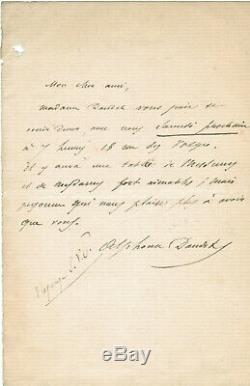 Mon cher ami,
madame Daudet vous prie de
venir diner avec nous samedi prochain
à 7 heures 18 des Vosges.
il y aura une tablée de Messieurs
et de mesdames fort aimables ; mais
personne qui nous plaise plus à voir
que vous.
Alphonse Daudet
Réponse S.V.P.